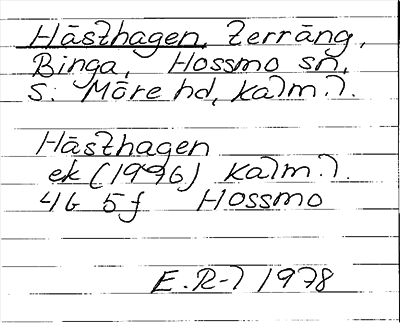 Hästhagen, terräng,
Binga, Hossmo sn,
S. Möre hd, Kalm. l.
Hästhagen
ek (1996) Kalm. l.
4G 5f Hossmo
E. R-l 1978